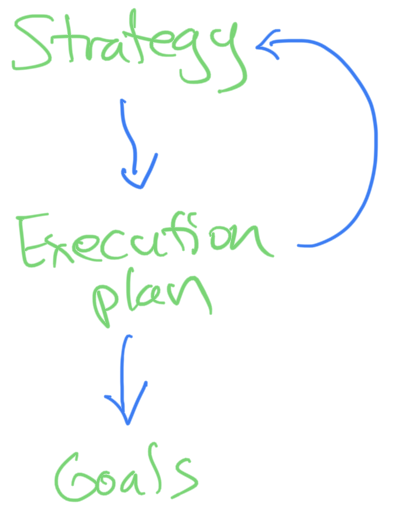 Strategy
Execution
plan
Goals